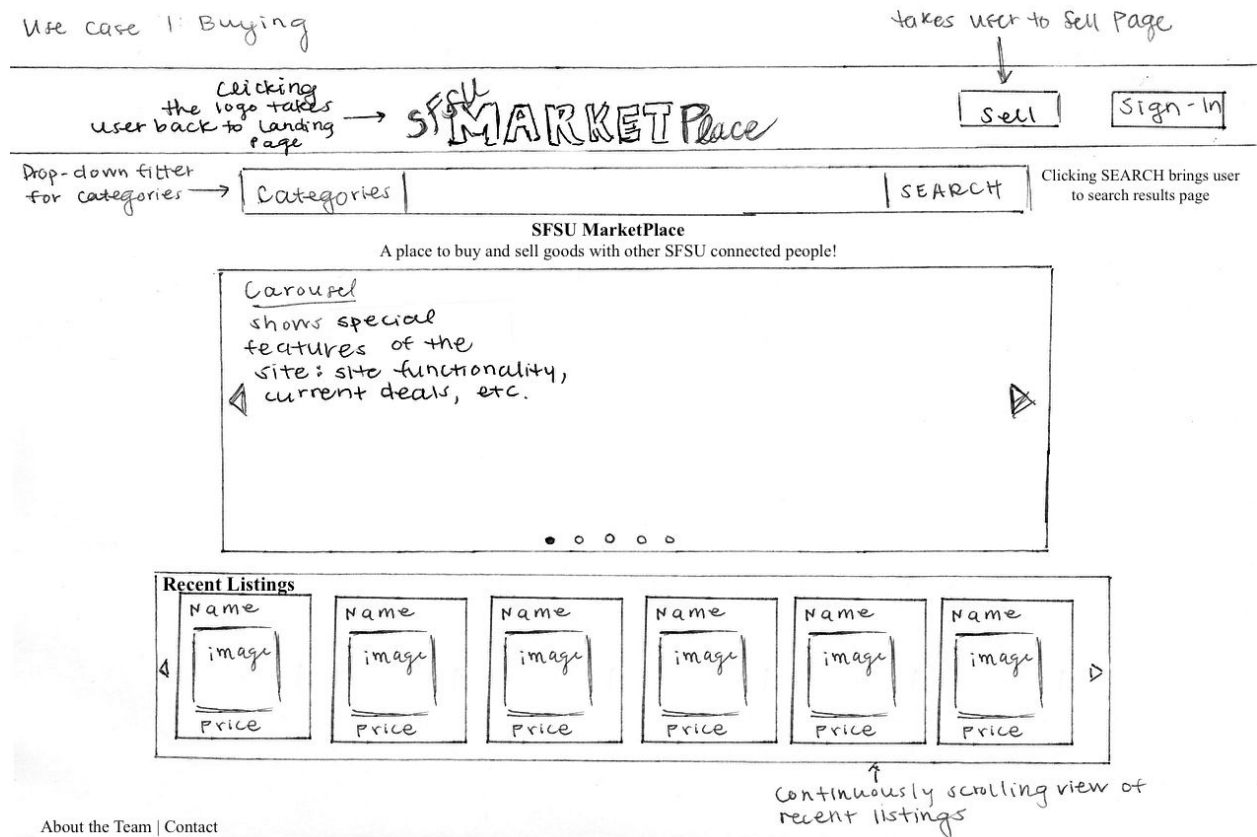 Use case 1: Buying
takes user to Sell Page
Clicking
the logo takes
user back to landing
page
SFSU MARKETPlace
Sell
Sign-In
Drop-down filter
for categories
Categories
SEARCH
Clicking SEARCH brings user
to search results page
SFSU MarketPlace
A place to buy and sell goods with other SFSU connected people!
Carousel
shows special
features of the
site: site functionality,
current deals, etc.
Recent Listings
Name Name Name Name Name Name
image image image image image image
Price Price Price Price Price Price
Continuously scrolling view of
recent listings
About the Team | Contact